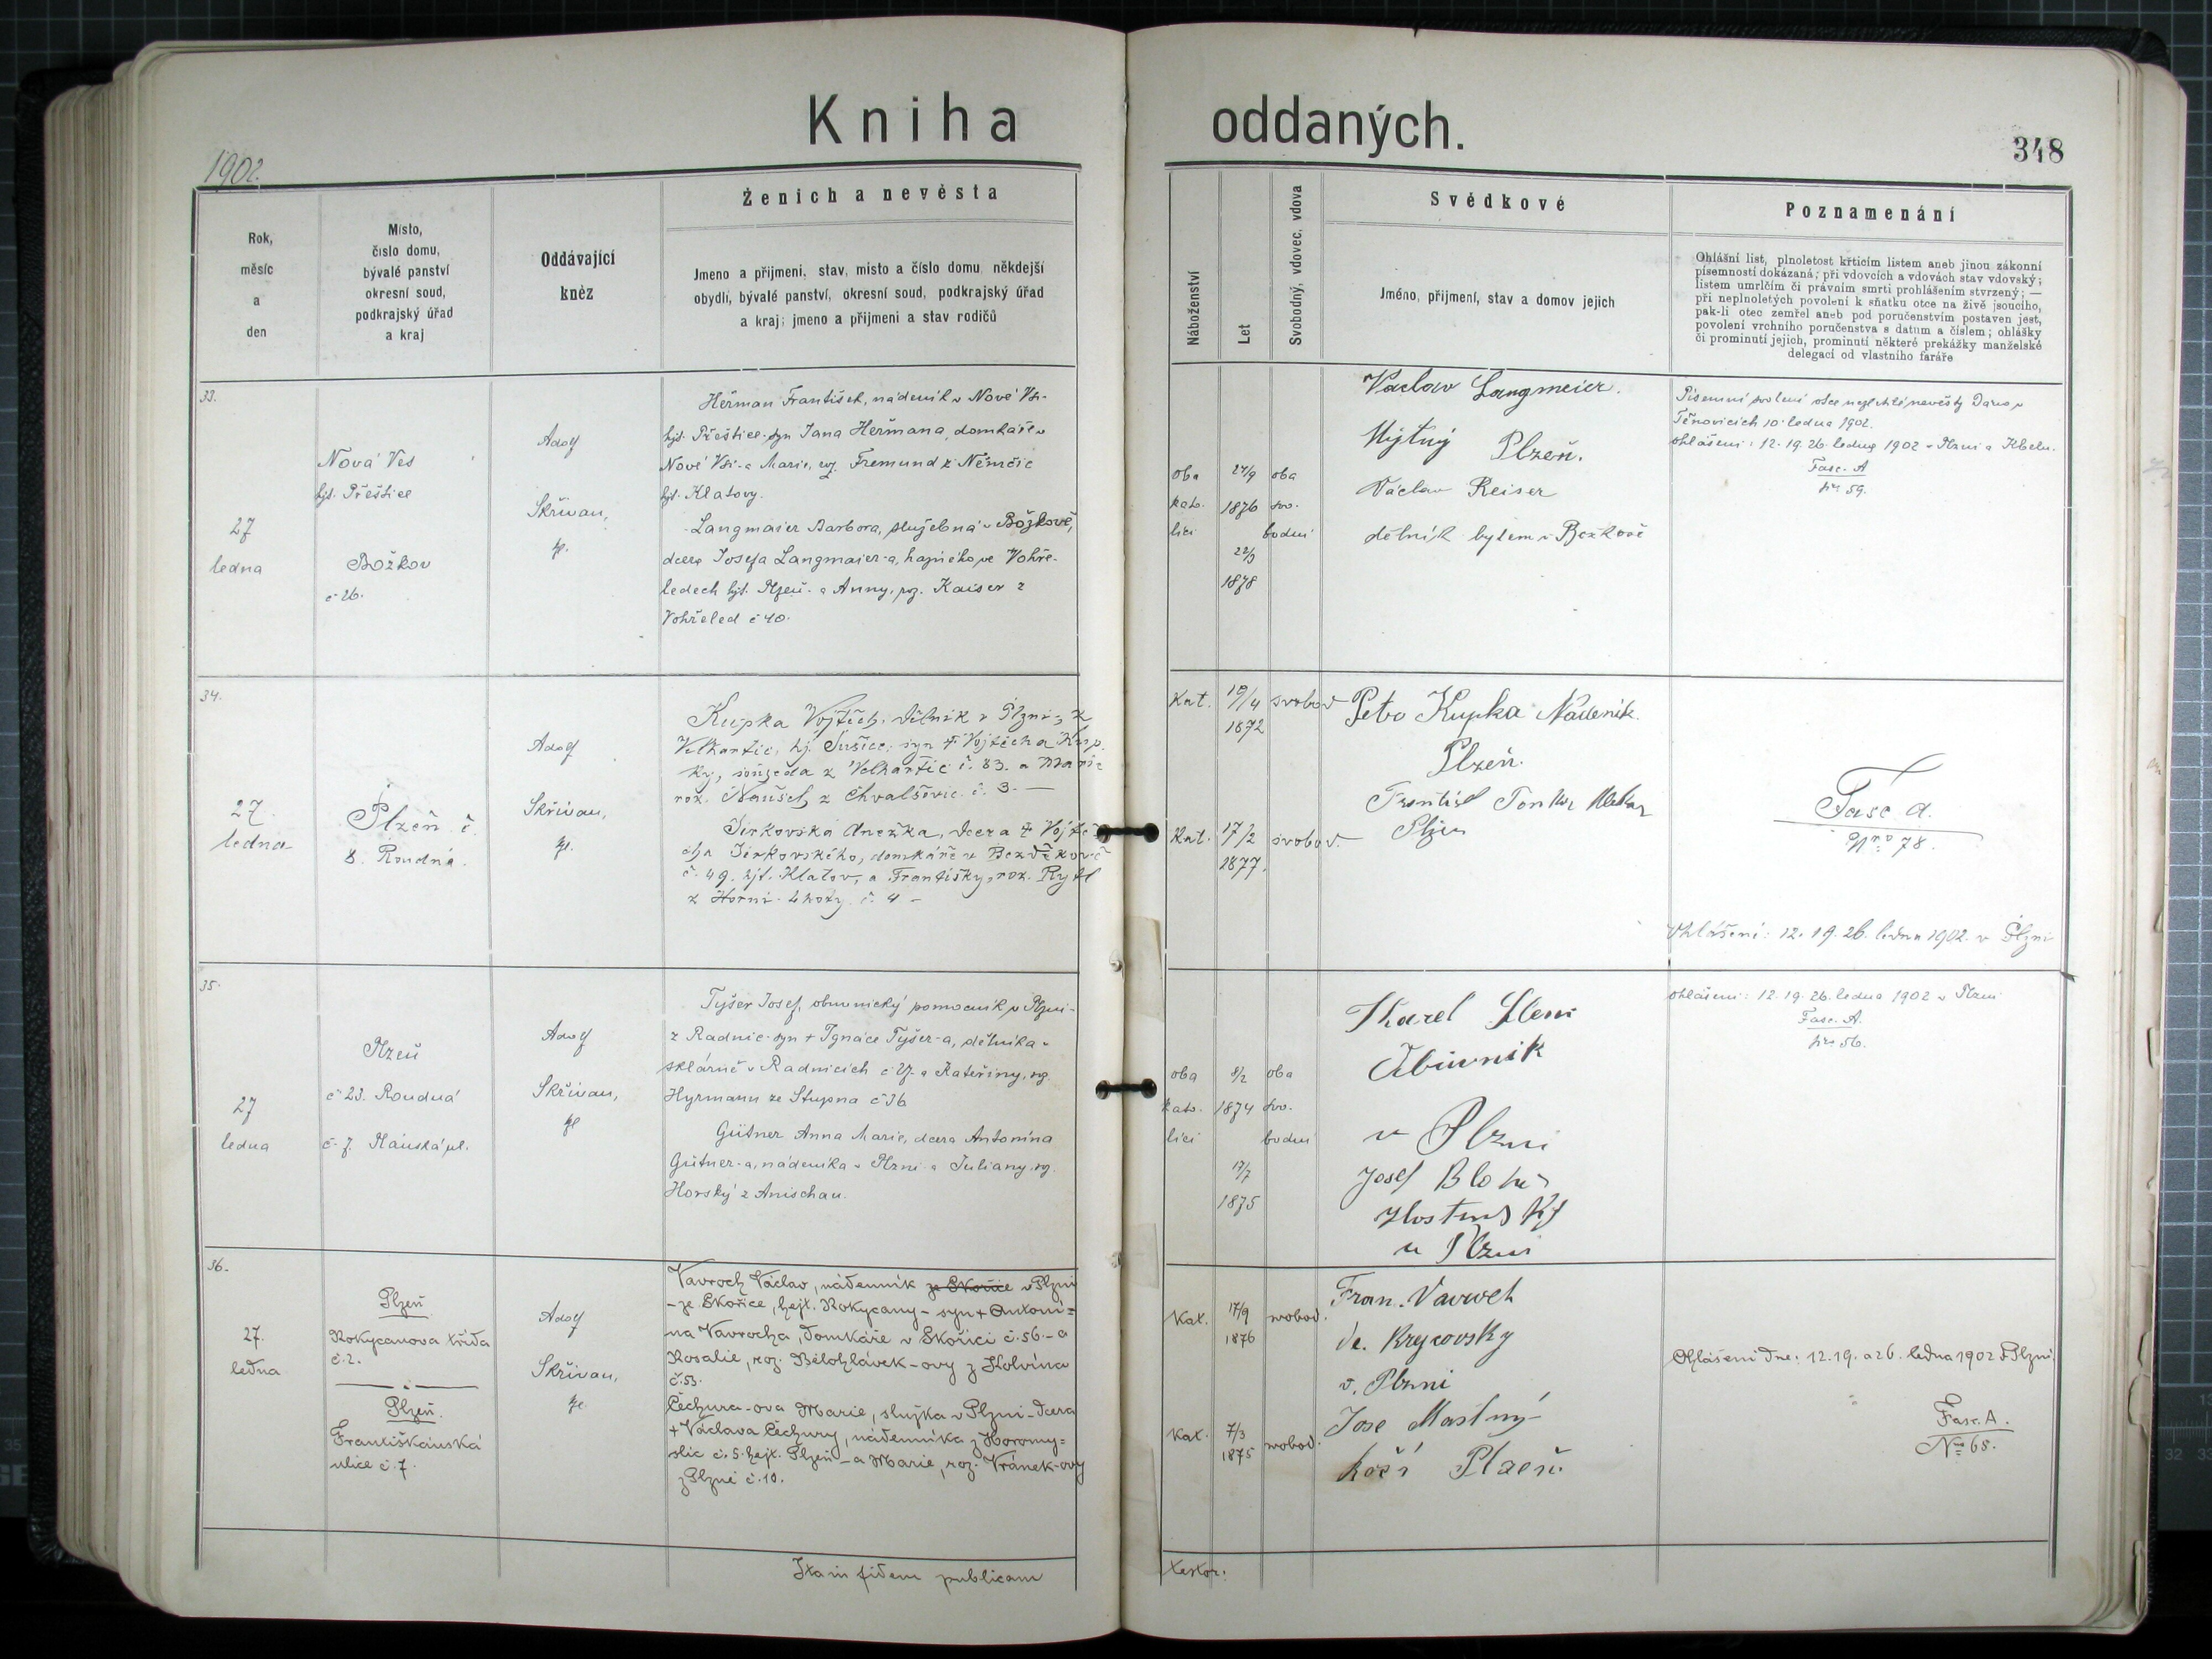 Kniha oddaných.
1902.
348
Rok,
měsíc
a
den
Místo,
číslo domu,
bývalé panství
okresní soud,
podkrajský úřad
a kraj
Oddávající
kněz
Ženich a nevěsta
Jmeno a přijmeni, stav, misto a číslo domu, někdejší
obydlí, bývalé panství, okresní soud, podkrajský úřad
a kraj; jmeno a přijmeni a stav rodičů
Náboženství
Let
Svobodný, vdovec, vdova
Svědkové
Jméno, přijmení, stav a domov jejich
Poznamenání
Ohlášní list, plnoletost křticím listem aneb jinou zákonní
písemností dokázaná; při vdovcích a vdovách stav vdovský;
listem umrlčím či právním smrti prohlášením stvrzený; —
při neplnoletých povolení k sňatku otce na živě jsoucího,
pak-li otec zemřel aneb pod poručenstvím postaven jest,
povolení vrchního poručenstva s datum a číslem; ohlášky
či prominutí jejich, prominutí některé prekážky manželské
delegaci od vlastního faráře
33.
27
ledna
Nová Ves
hjt. Přeštice
Božkov
č 26.
Adolf
Skřivan,
Heřman František, nádeník v Nové Vsi-
hjt. Přeštice- syn Jana Heřmana, domkáře v
Nové Vsi- a Marie, roz. Fremund z Němčic
hjt. Klatovy.
Langmaier Barbora, služebná v Božkově,
dcera Josefa Langmaier-a, hajného ve Vohře-
ledech hjt. Plzeň- a Anny, roz. Kaiser z
Vohřeled č 40.
oba
kato-
líci
24/9
1876
22/3
1878
oba
svo-
bodni
Vaclav Langmeier.
Mýtný Plzeň.
Václav Reiser
dělník bytem v Bozkově
Písemní svolení otce nezletilé nevěsty Dáno v
Těnovicích 10. ledna 1902.
Ohlášeni: 12. 19. 26. ledna 1902 v Plzni a Kbelu.
Fasc. A
No 59.
34.
27.
ledna
Plzeň č.
8. Roudná.
Adolf
Skřivan,
Kupka Vojtěch, dělník v Plzni, z
Velhartic, hj. Sušice, syn † Vojtěcha Kup-
ky, souseda z Velhartic č. 83. a Marie
roz. Naušch z Chvalšovic č. 3. —
Jirkovská Anežka, dcera † Vojtě-
cha Jirkovského, domkáře v Bezděkově
č. 49. hjt. Klatov, a Františky, roz. Rytl
z Horni- Lhoty č. 4 -
Kat.
19/4
1872
svobod
Kat.
17/2
1877.
svobod.
Petr Kupka Nádeník
Plzeň.
František
Plzen
Fasc. A.
Nro 78.
Ohlášeni: 12. 19. 26. ledna 1902. v Plzni
35.
27
ledna
Plzeň
č 23. Roudná
č. 7.
Adolf
Skřivan,
Tyšer Josef, obuvnický pomocník v Plzni-
z Radnic- syn + Ignáce Tyšer-a, dělníka v
sklárně v Radnicích č 27- a Kateřiny, roz.
Hyrmann ze Stupna č 36
Gütner Anna Marie, dcera Antonína
Gütner-a, nádeníka v Plzni- a Juliany, roz.
Horský z Anischau.
oba
kato-
líci
8/2
1874
17/7
1875
oba
svo-
bodni
Karel
v Plzni
Josef
v Plzni
Ohlášeni: 12. 19. 26. ledna 1902 v Plzni
Fasc. A.
No 56.
36.
27.
ledna
Plzeň
Rokycanova třída
č. 2.
Plzeň.
Františkánská
ulice č. 7.
Adolf
Skřivan,
Vavroch Václav, nádenník ze Skořice v Plzni
-ze Skořice, hejt. Rokycany- syn + Antoni=
na Vavrocha, domkáře v Skořici č. 56.- a
Rosalie, roz. Bělohlávek-ovy z Kolvína
č. 53.
Čechura-ova Marie, služka v Plzni- dcera
+ Václava Čechury, nádenníka z Horomy=
slic č. 5. hejt. Plzeň - a Marie, roz. Vránek-ovy
z Plzně č. 10.
Kat.
17/9
1876
svobod.
Kat.
7/3
1875
svobod.
Fran. Vavroch
v. Plzni
Jose Mastný
Plzeň.
Ohlášeni dne: 12. 19. a 26. ledna 1902 v Plzni.
Fasc. A.
No 65.
Itam fidem publicam
testor: